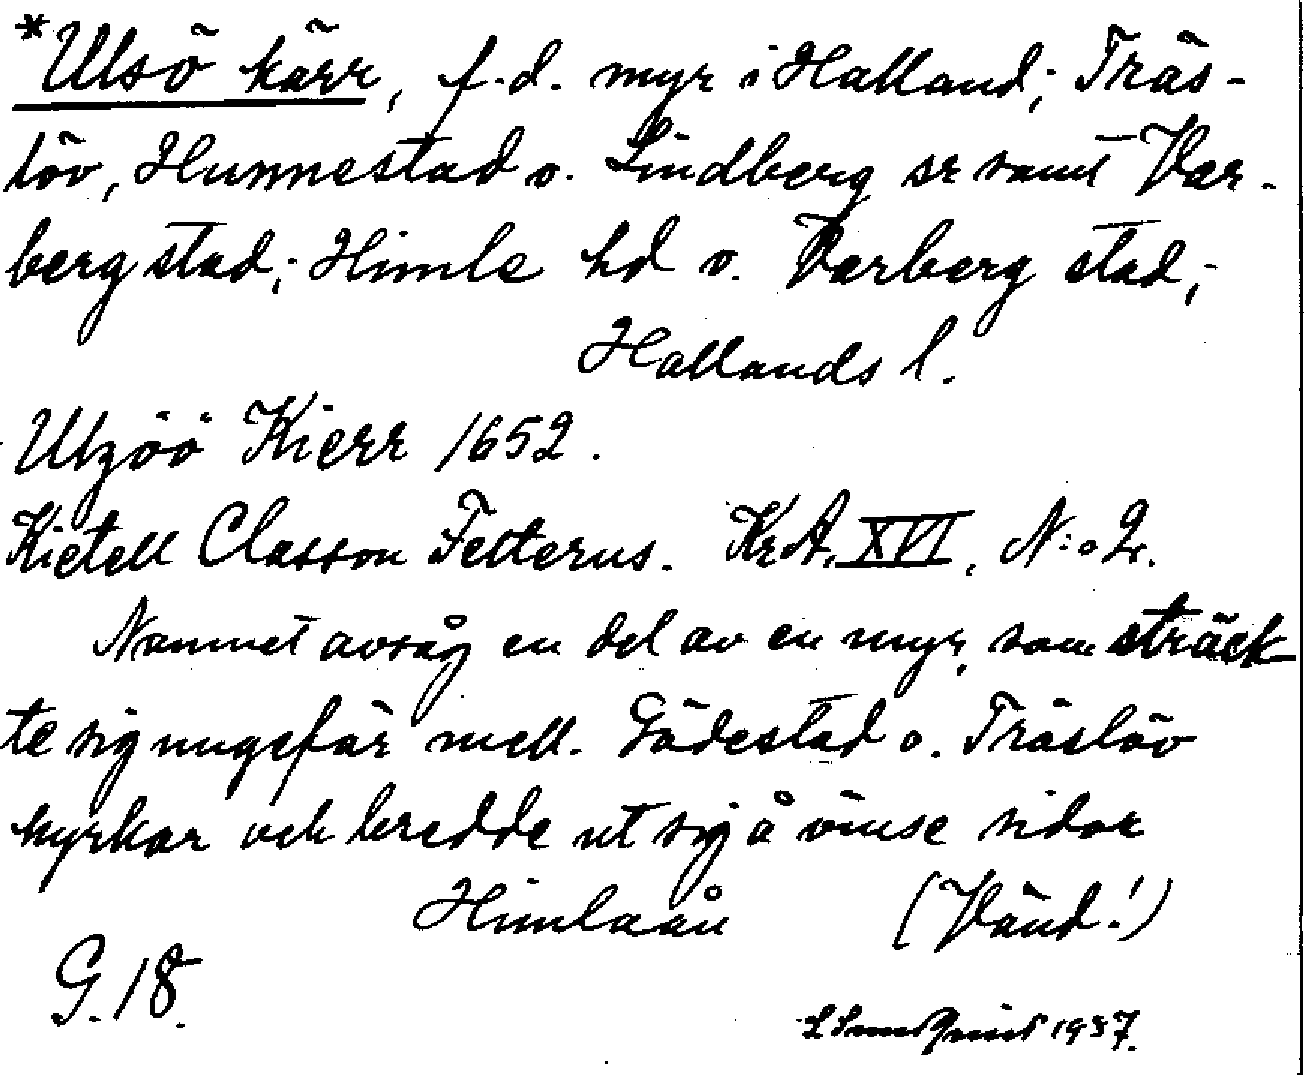 *Ulsö kärr, f.d. myr i Halland; Träs-
löv, Hunnestad o. Lindberg sr samt Var-
berg stad; Himle hd o. Varberg stad;
Hallands l.
Ulzöö Kierr 1652.
Kietell Classon Felterus. KrA. XVI, N:o 2.
Namnet avsåg en del av en myr, som sträck
te sig ungefär mell. Gödestad o. Träslöv
kyrkor och bredde ut sig å ömse sidor
Himlaån (Vänd!)
G. 18.
1937.